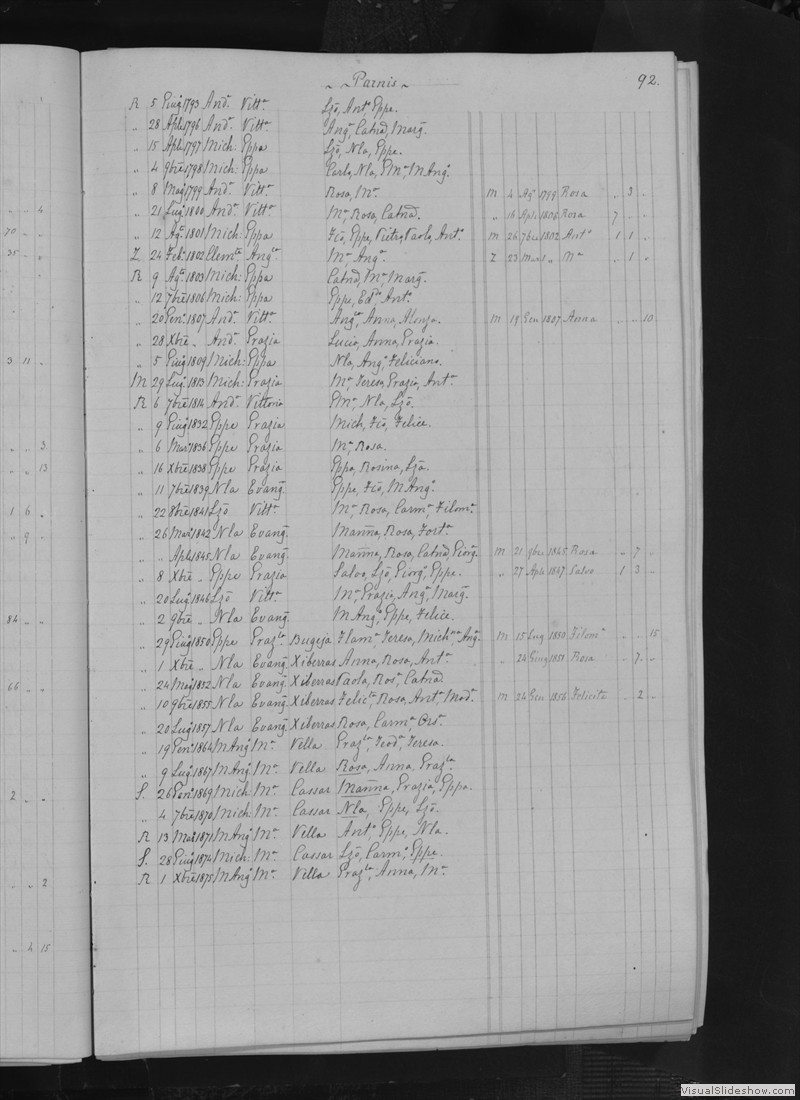 Parnis 92.
R 5 Giug 1793 And. Vitt.a Ljō, Ant.a Eppe.
" 28 Aple 1796 And. Vitt.a Ang., Catnd, Marg.
" 15 Aple 1797 Mich: Eppa Ljō, Nla, Eppe.
" 4 9bre 1798 Mich: Eppa Carlo, Nla, M Ang.
" 8 Mag 1799 And. Vitt.a Rosa, M.a m 4 Ag. 1799 Rosa " 3 "
" 21 Lug 1800 And. Vitt.a M.a, Rosa, Catnd. " 16 Aple 1806 Rosa 7 " "
" 12 Ag. 1801 Mich: Eppa Eppe, Pietro, Paolo, Ant.o m 26 7bre 1802 Ant.o 1 1 "
Z 24 Feb. 1802 Clem.te Ang.la M.a Ang.a Z 23 " M.a " 1 "
R 9 Ag. 1803 Mich: Eppa Catnd, M.a Marg.
" 12 7bre 1806 Mich: Eppa Eppe, Ant.
" 20 Gen. 1807 And. Vitt.a Ang.la, Anna, m 19 Gen 1807 Anna " " 10
" 28 Xbre " And. Grazia Lucia, Anna, Grazia.
" 5 Giug 1809 Mich: Eppa Nla, Ang., Feliciana.
M 29 Lug. 1813 Mich: Grazia M.a, Teresa, Grazia, Ant.a
R 6 7bre 1814 And. Vittoria Nla, Ljō.
" 9 Giug 1832 Eppe Grazia Mich, Fcō, Felice.
" 6 Mar 1836 Eppe Grazia M.a, Rosa.
" 16 Xbre 1838 Eppe Grazia Eppa, Rosina, Ljā.
" 11 7bre 1839 Nla Evang. Eppe, Fcō, M Ang.
" 22 8bre 1841 Ljō Vitt.a M.a, Rosa, Carm.a, Filom.a
" 26 Mar 1842 Nla Evang. Mannā, Rosa, Fort.a
" " Aple 1845 Nla Evang. Mannā, Rosa, Catnd, Giorg. m 21 9bre 1845 Rosa " 7 "
" 8 Xbre " Eppe Grazia Salvo, Ljō, Giorg., Eppe. " 27 Aple 1847 Salvo 1 3 "
" 20 Lug 1846 Ljō Vitt.a M.a, Grazia, Ang.a, Marg.
" 2 9bre " Nla Evang. M Ang., Eppe, Felice.
" 29 Giug 1850 Eppe Graz.la Bugeja Filom.a, Teresa, Mich.na Ang. m 15 Lug 1850 Filom.a " " 15
" 1 Xbre " Nla Evang. Xiberras Anna, Rosa, Ant.a " 24 Giug 1851 Rosa " 7 "
" 24 Mag 1852 Nla Evang. Xiberras Paola, Ros.a, Catnd
" 10 9bre 1855 Nla Evang. Xiberras Felic.ta, Rosa, Ant.a, Mod.a m 24 Gen 1856 Felicita " 2 "
" 20 Lug 1857 Nla Evang. Xiberras Rosa, Carm.a, Ors.
" 19 Gen. 1864 M Ang. M.a Vella Graz.la, Teod.a, Teresa.
" 9 Lug 1867 M Ang. M.a Vella Rosa, Anna, Graz.la
S. 26 Gen. 1869 Mich: M.a Cassar Mannā, Grazia, Eppa.
" 4 7bre 1870 Mich: M.a Cassar Nla, Eppe, Ljō.
R 13 Mar 1871 M Ang. M.a Vella Ant.o, Eppe, Nla.
S. 28 Giug 1874 Mich: M.a Cassar Ljō, Carm., Eppe.
R 1 Xbre 1875 M Ang. M.a Vella Graz.la, Anna, M.a
" " 4
70 " "
35 " "
3 11 "
" " 3
" " 13
1 6 "
" 9 "
84 " "
66 " "
2 " "
" " 2
" 4 15
VisualSlideshow.com